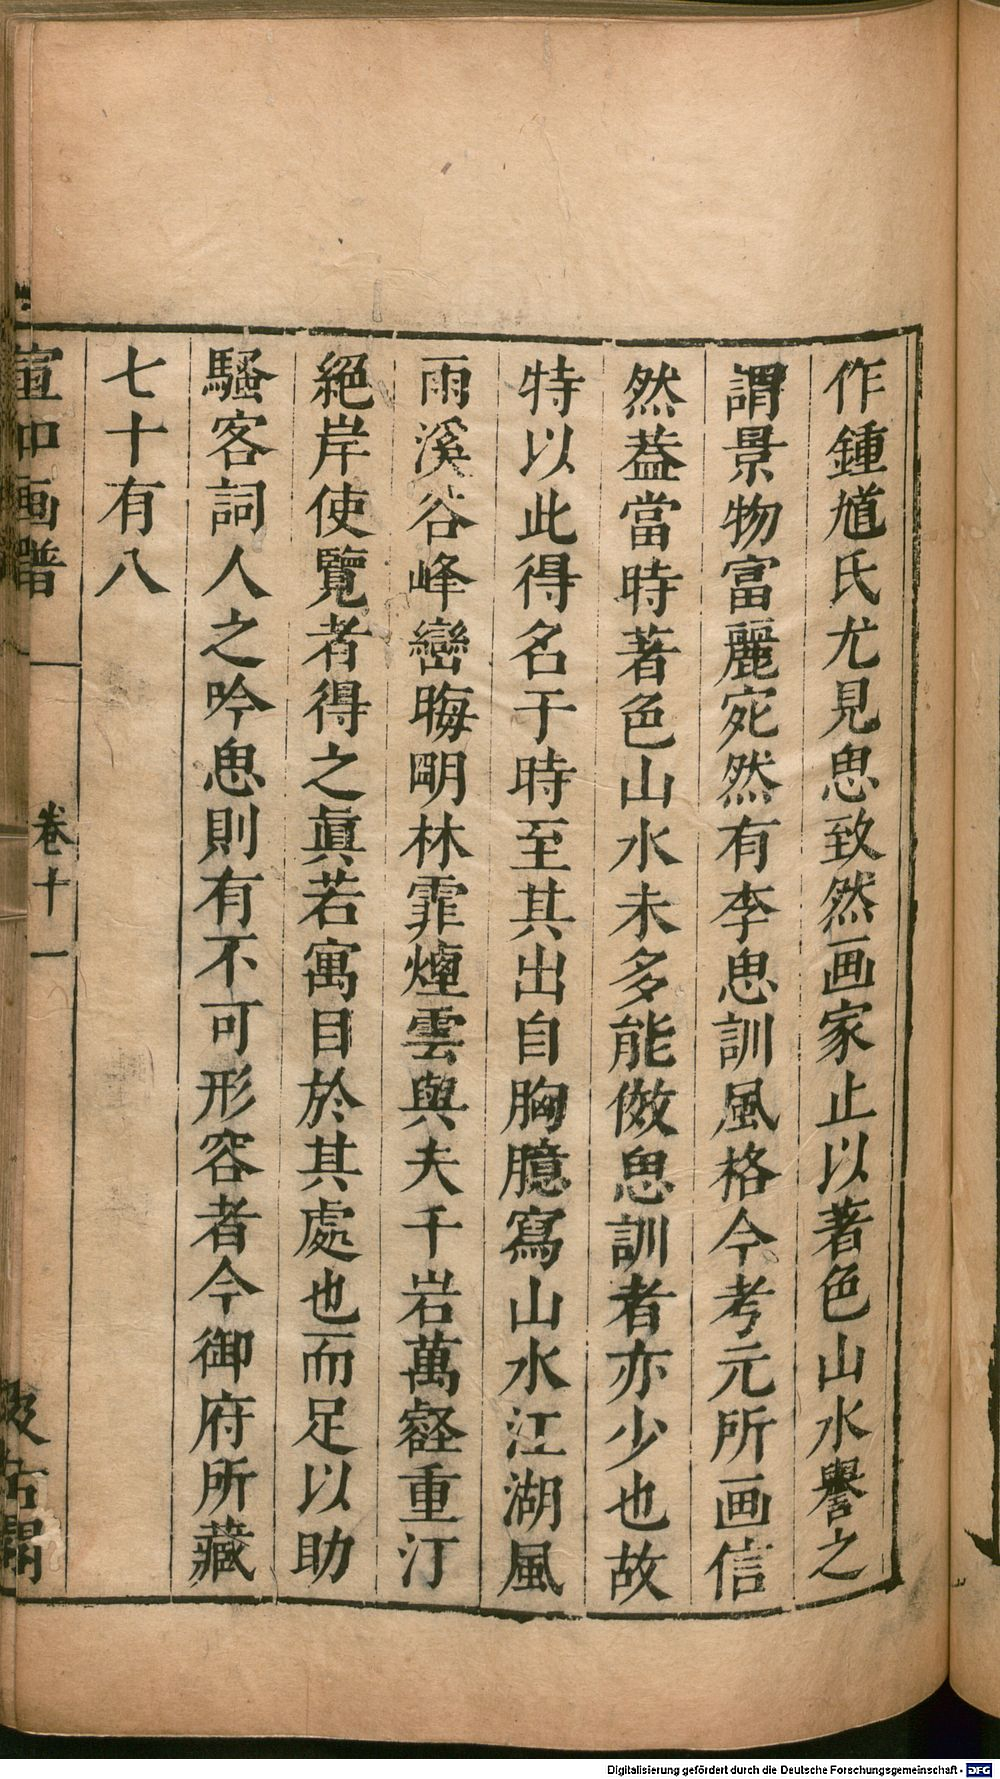 作鍾馗氏尤見思致然画家止以著色山水譽之
謂景物富麗宛然有李思訓風格今考元所画信
然葢當時著色山水未多能倣思訓者亦少也故
特以此得名于時至其出自胸臆寫山水江湖風
雨溪谷峰巒晦明林霏煙雲與夫千岩萬壑重汀
絕岸使覽者得之眞若寓目於其處也而足以助
騷客詞人之吟思則有不可形容者今御府所藏
七十有八
宣和画譜
卷十一
汲古閣
Digitalisierung gefördert durch die Deutsche Forschungsgemeinschaft - DFG